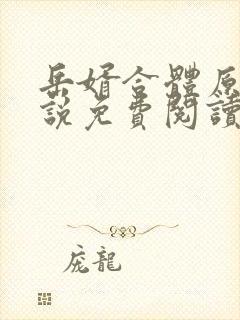 岳婿合體原
說免費閱讀
庞龍